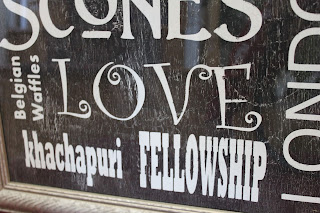 SCONES
Belgian
Waffles
LOVE
khachapuri FELLOWSHIP